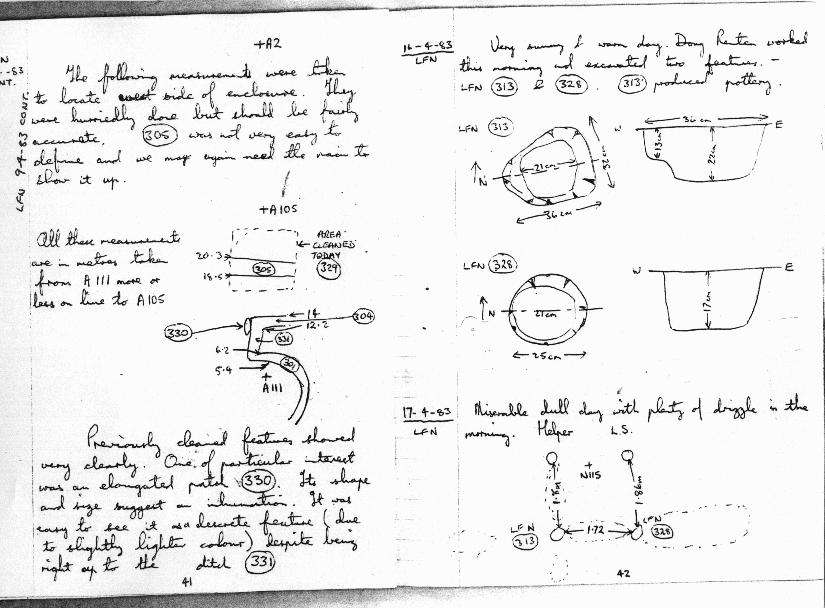 +A2
LFN 9-4-83 CONT.
The following measurements were taken
to locate west side of enclosure. They
were hurriedly done but should be fairly
accurate. 305 was not very easy to
define and we may again need the rain to
show it up.
+A105
All these measurements
are in metres taken
from A111 more or
less on line to A105
AREA
CLEANED
TODAY
329
20.3
305
18.5
14
304
12.2
330
331
6.2
301
5.4
+
A111
Previously cleaned features showed
very clearly. One of particular interest
was an elongated 330. Its shape
and size suggest an inhumation. It was
easy to see it as a descrete feature (due
to slightly lighter colour) despite being
right up to the ditch 331
41
16-4-83
LFN
Very sunny & warm day. Doug Renten worked
this morning and excavated two features. -
LFN 313 & 328. 313 produced pottery.
LFN 313
21cm
32cm
36cm
N
W
36cm
E
13cm
22cm
LFN 328
N
21cm
25cm
W
E
17cm
17-4-83
LFN
Miserable dull day with plenty of drizzle in the
morning. Helper L.S.
+
N115
1.8m
1.86m
LFN
313
1.72
LFN
328
42